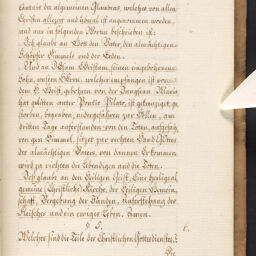 thun ist der algemeinen Glaubens, welcher von allen
Christen allezeit und überal ist angenommen worden,
und mit in folgenden Worten beschrieben ist:
Ich glaube an Gott den Vater den almächtigen
Schöpfer Himmels und der Erden.
Und an Jesum Christum, seinen eingebohrnen
Sohn, unsern Herrn, welcher empfangen ist von
dem H. Geist, gebohren von der Jungfrau Maria
hat gelitten unter Pontio Pilato, ist gekreuziget, ge-
storben, begraben, niedergefahren zur Höllen, am
dritten Tage auferstanden von den Toten, aufgefah-
ren gen Himmel, sitzet zur rechten Hand Gottes
des almächtigen Vaters, von dannen Er kommen
wird zu richten die Lebendigen und die Toten.
Ich glaube an den Heiligen Geist, Eine heilige al-
gemeine Christliche Kirche, der Heiligen Gemein-
schaft, Vergebung der Sünden, Auferstehung des
Fleisches und ein ewiges Leben. Amen.
§ 5. 6.
Welches sind die Teile des Christlichen Gottesdienstes?
Die